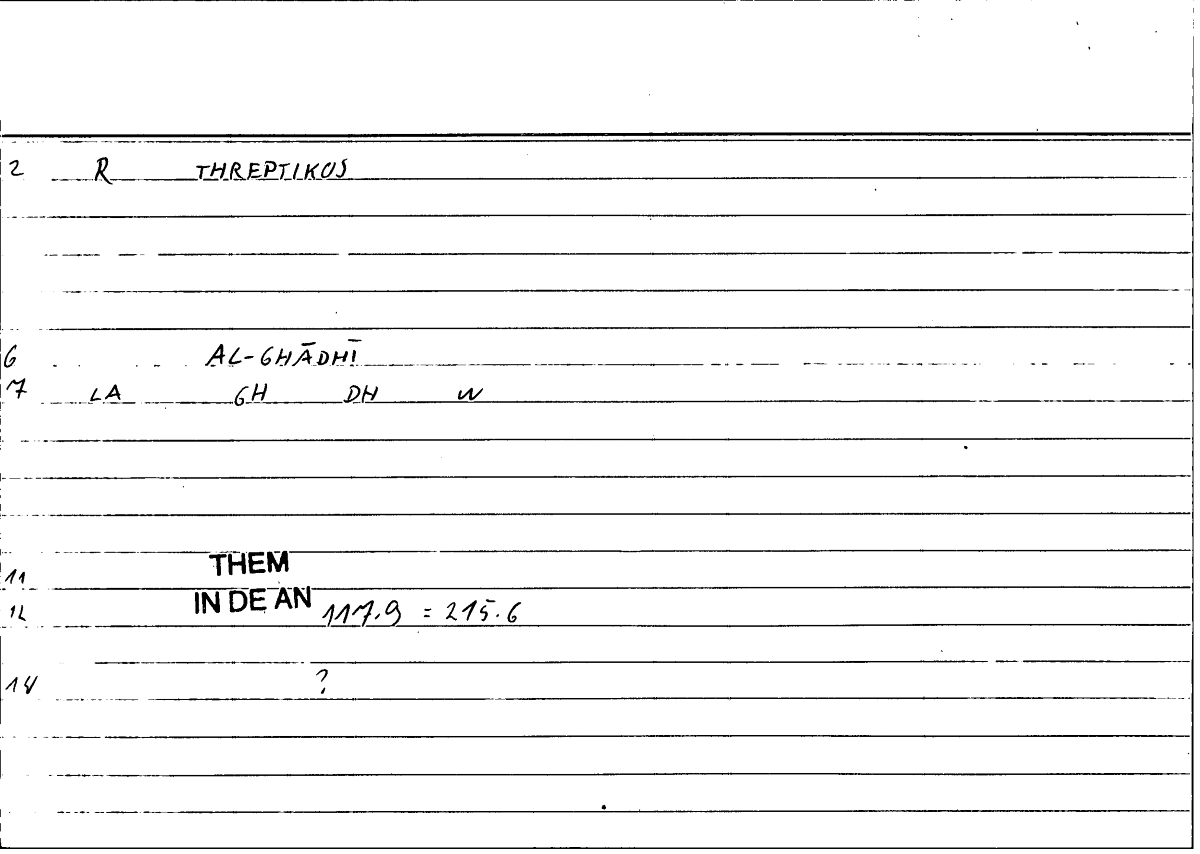 2 R THREPTIKOS
6 AL-GHĀDHĪ
7 LA GH DH W
11 THEM
12 IN DE AN 117.9 = 215.6
14 ?